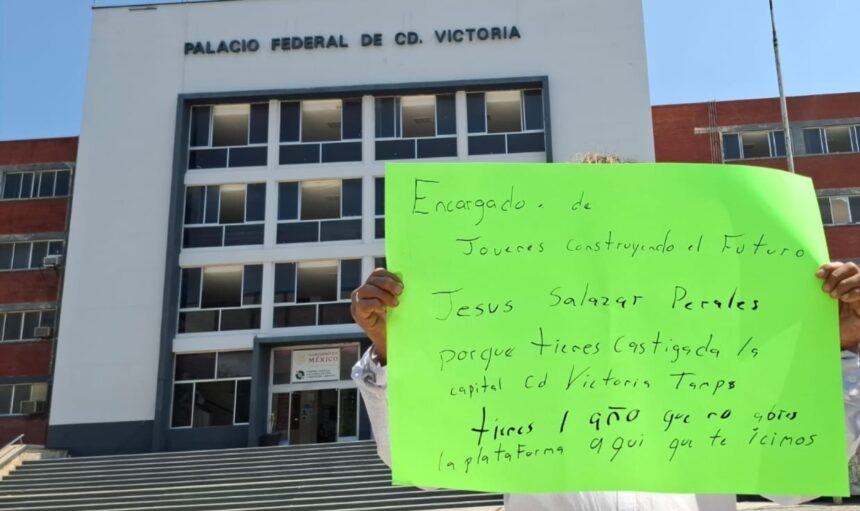 PALACIO FEDERAL DE CD. VICTORIA
GOBIERNO DE
MÉXICO
Encargado. de
Jovenes construyendo el Futuro
Jesus Salazar Perales
porque tienes Castigada la
capital Cd Victoria Tamps
tienes 1 año que no abres
la plataforma aqui que te icimos